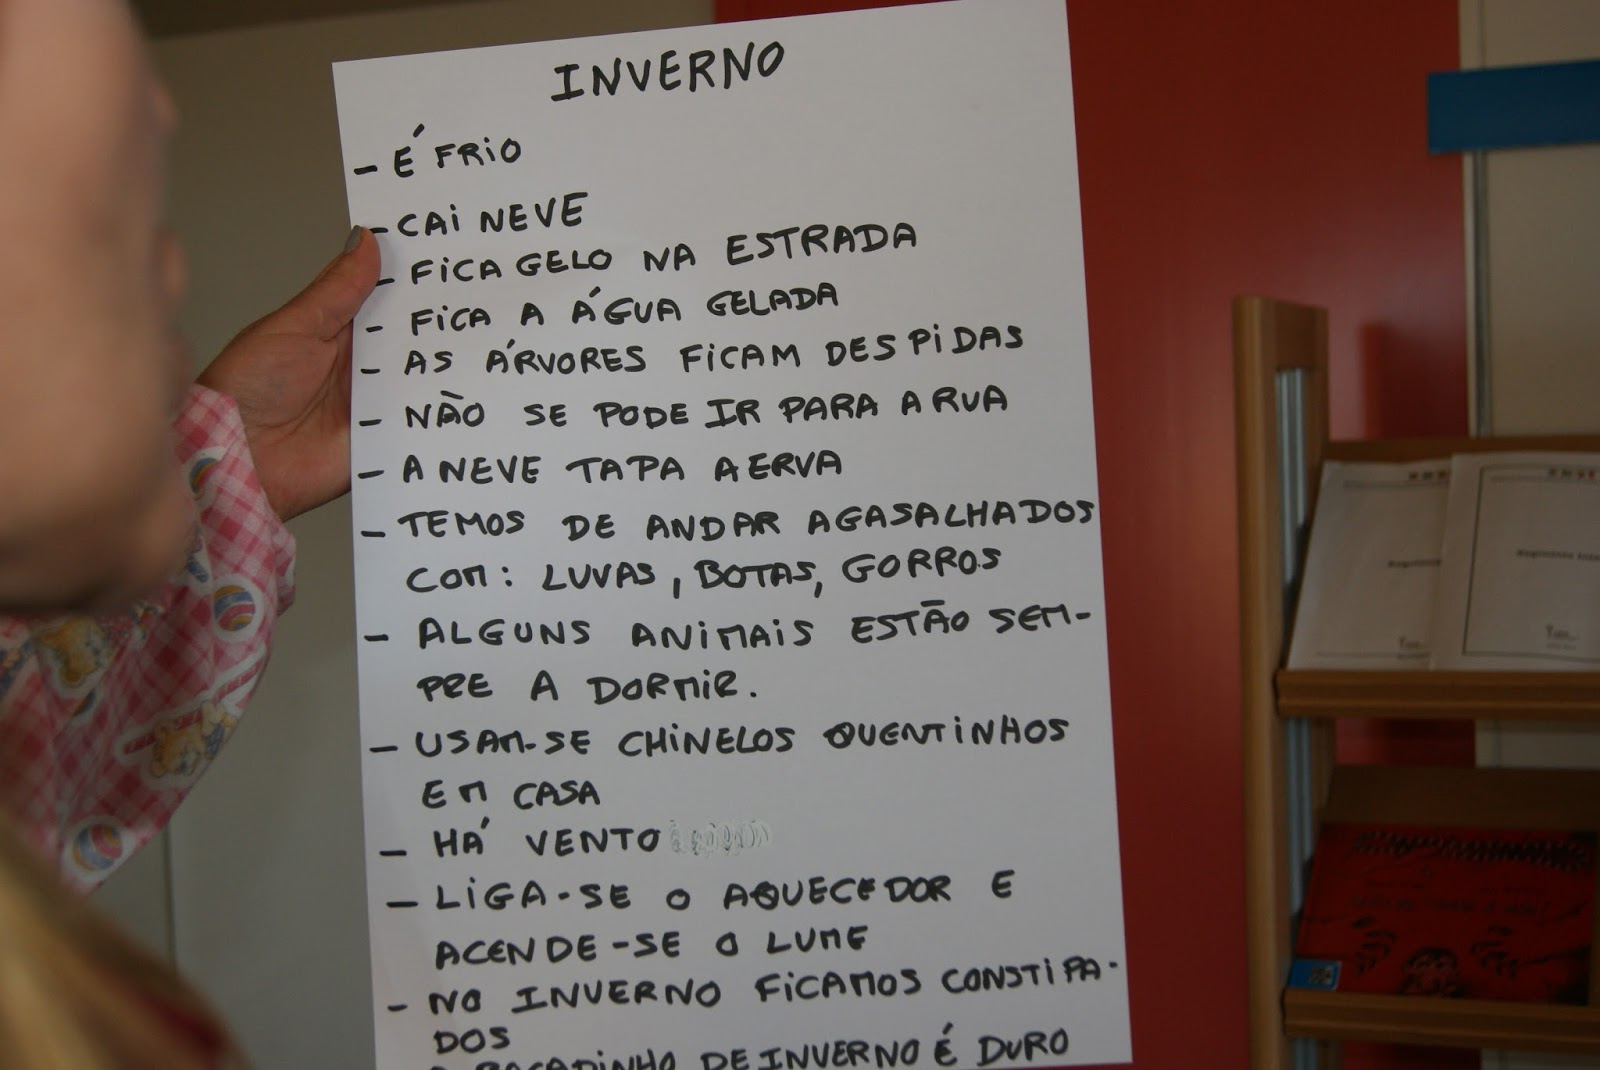 INVERNO
- É FRIO
- CAI NEVE
- FICA GELO NA ESTRADA
- FICA A ÁGUA GELADA
- AS ÁRVORES FICAM DESPIDAS
- NÃO SE PODE IR PARA A RUA
- A NEVE TAPA A ERVA
- TEMOS DE ANDAR AGASALHADOS
COM: LUVAS, BOTAS, GORROS
- ALGUNS ANIMAIS ESTÃO SEM-
PRE A DORMIR.
- USAM-SE CHINELOS QUENTINHOS
EM CASA
- HÁ VENTO
- LIGA-SE O AQUECEDOR E
ACENDE-SE O LUME
- NO INVERNO FICAMOS CONSTIPA-
DOS
DE INVERNO É DURO